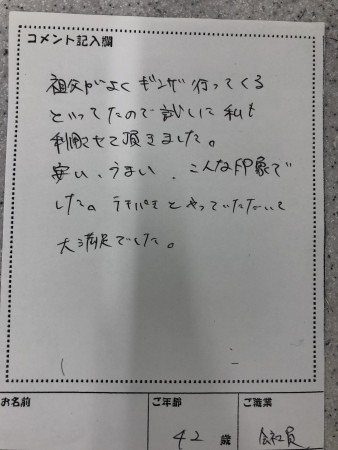 コメント記入欄
祖父がよくギンザ行ってくる
といってたので試しに私も
利用させて頂きました。
安い、うまい、こんな印象で
した。テキパキとやっていただいて
大満足でした。
お名前
ご年齢
ご職業
42 歳
会社員